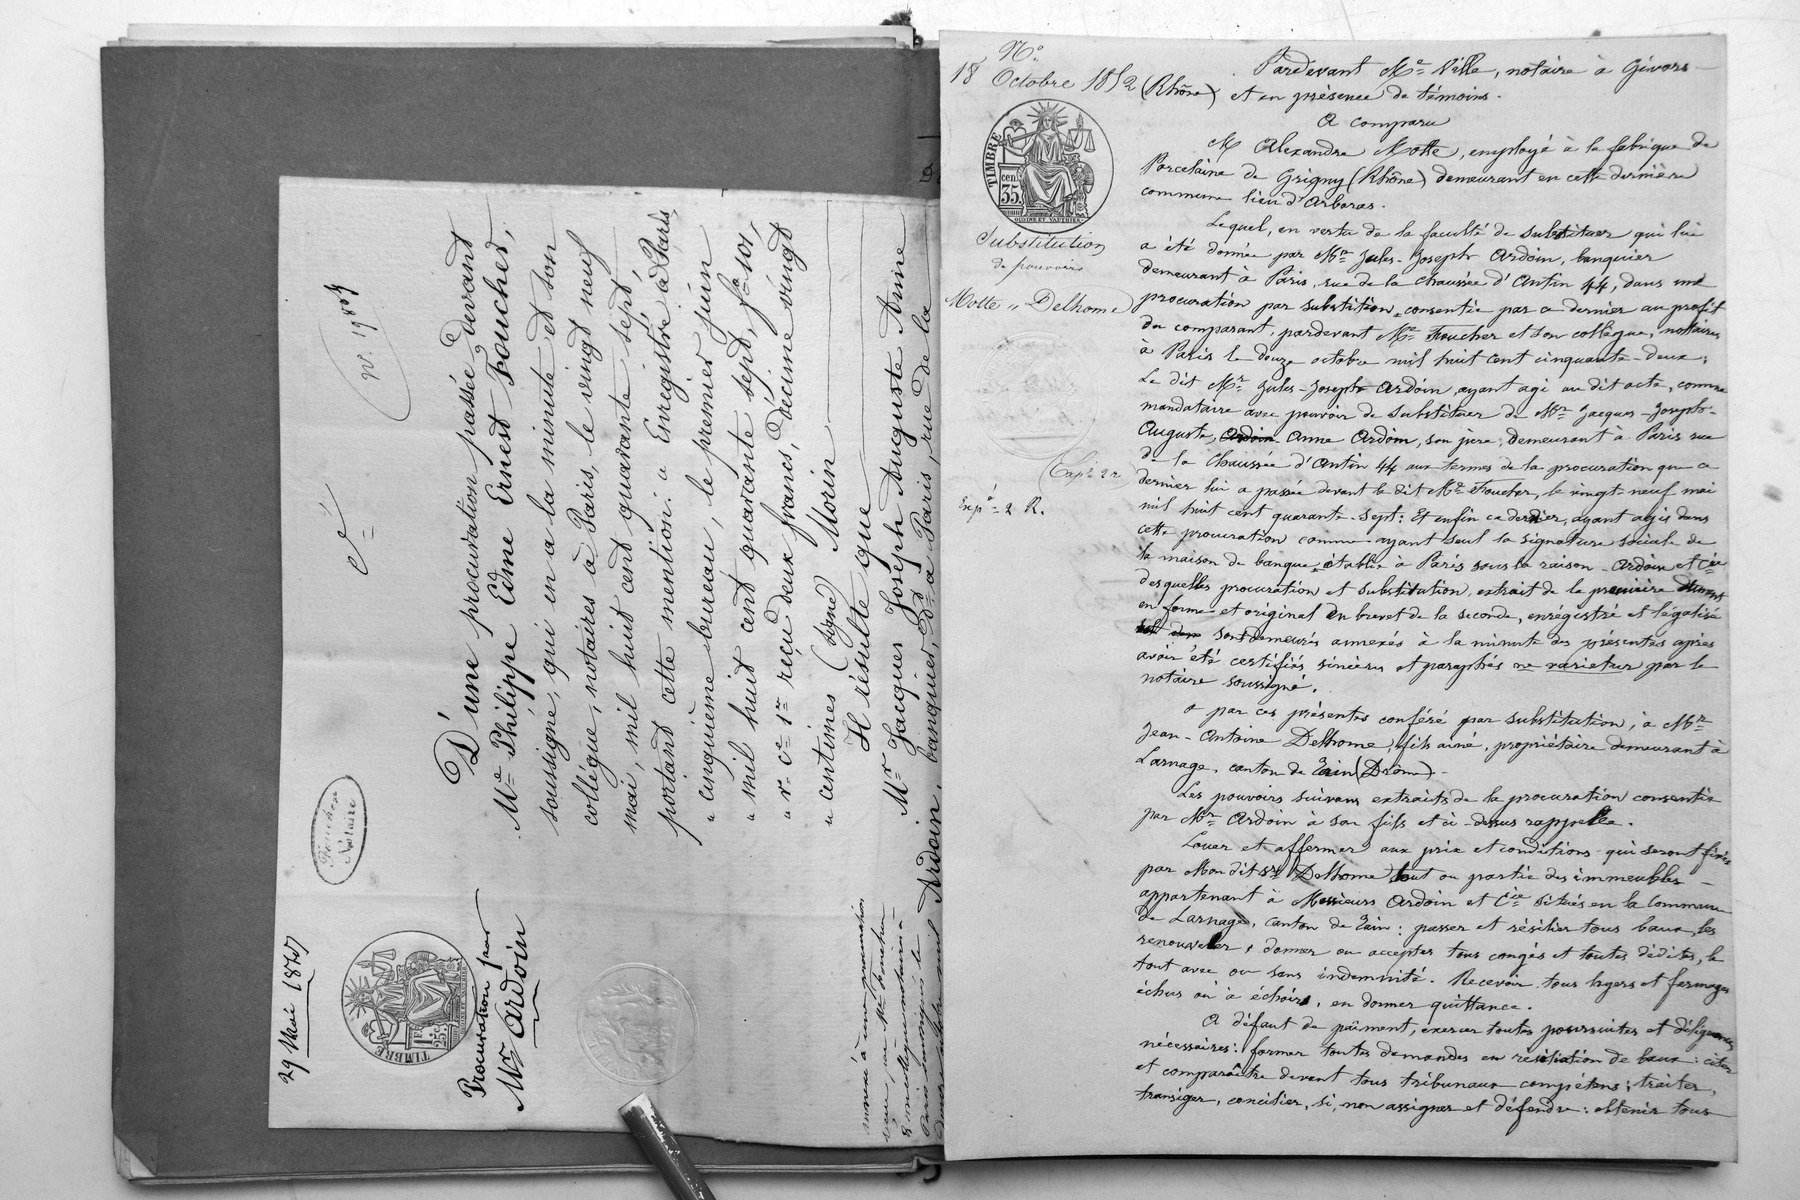 29 Mai 1847
TIMBRE
25c
Procuration par
Mr Ardoin
Foucher
Notaire
N°. 19804
D'une procuration passée devant
Me Philippe Edme Ernest Foucher,
soussigné, qui en a la minute et son
collègue, notaires à Paris, le vingt neuf
mai, mil huit cent quarante sept,
portant cette mention: « Enregistré à Paris,
« cinquième bureau, le premier juin
« mil huit cent quarante sept, fo 101,
« ro ce 1re reçu deux francs, décime vingt
« centimes (signé) Morin
Il résulte que
Mr Jacques Joseph Auguste Anne
Ardoin, banquier, dt à Paris, rue de la
annexé à une procuration
N°
18 Octobre 1852
TIMBRE
cen.
35.
OUDINE ET VAUTHIER
Substitution
de pouvoirs
Motte " Delhome
Expé 2 R.
Pardevant Me Ville, notaire à Givors
(Rhône) et en présence de témoins.
A comparu
M Alexandre Motte, employé à la fabrique de
Porcelaine de Grigny (Rhône) demeurant en cette dernière
commune lieu d'Arboras.
Lequel, en vertu de la faculté de substituer qui lui
a été donnée par Mr Jules-Joseph Ardoin, banquier
demeurant à Paris, rue de la chaussée d'Antin 44, dans une
procuration par substitution, consentie par ce dernier au profit
du comparant, pardevant Me Foucher et son collègue, notaires
à Paris le douze octobre mil huit cent cinquante-deux;
Le dit Mr Jules-Joseph Ardoin, ayant agi au dit acte, comme
mandataire avec pouvoir de substituer de Mr Jacques-Joseph-
Auguste, Ardoin Anne Ardoin, son père, demeurant à Paris rue
de la Chaussée d'Antin 44 aux termes de la procuration que ce
dernier lui a passée devant le dit Me Foucher, le vingt-neuf mai
mil huit cent quarante-sept: Et enfin ce dernier, ayant agi dans
cette procuration comme ayant seul la signature sociale de
la maison de banque, établie à Paris sous la raison Ardoin et Cie
desquelles procuration et substitution, extrait de la première
en forme et original en brevet de la seconde, enrégistré et légalisé
sont demeurés annexés à la minute des présentes après
avoir été certifiés sincères et paraphés ne varietur par le
notaire soussigné.
a par ces présentes conféré par substitution, à Mr
Jean-Antoine Delhome, fils ainé, propriétaire demeurant à
Larnage, canton de Tain (Drôme).
Les pouvoirs suivans extraits de la procuration consentie
par Mr Ardoin à son fils et ci-dessus rappelée.
Louer et affermer aux prix et conditions qui seront fixés
par Mon dit Sr Delhome tout ou partie des immeubles
appartenant à Messieurs Ardoin et Cie situés en la Commune
de Larnage, canton de Tain: passer et résilier tous baux, les
renouveler, donner ou accepter tous congés et toutes dédites, le
tout avec ou sans indemnité. Recevoir tous loyers et fermages
échus ou à échoir, en donner quittance.
A défaut de paîment, exercer toutes poursuites et diligences
nécessaires: former toutes demandes en résiliation de baux: citer
et comparaître devant tous tribunaux compétens; traiter,
transiger, concilier, si, non assigner et défendre: obtenir tous